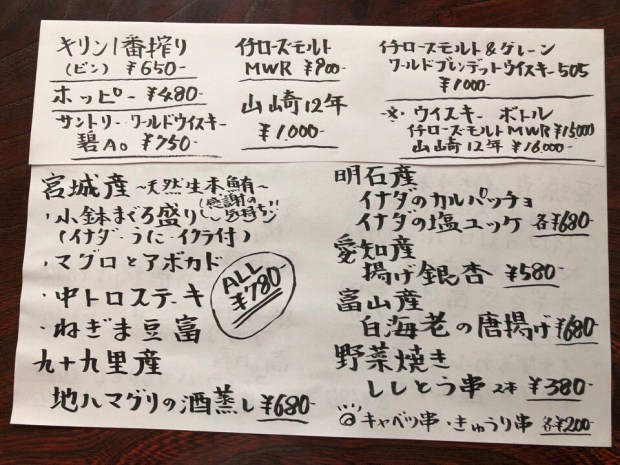 キリン一番搾り
(ビン) ¥650-
ホッピー ¥480-
サントリー・ワールドウイスキー
碧Ao ¥750-
イチローズ・モルト
MWR ¥900-
山崎12年
¥1,000-
イチローズモルト&グレーン
ワールドブレンデットウイスキー 505
¥1000-
ウイスキー ボトル
イチローズ・モルトMWR ¥15000
山崎12年 ¥16,000-
宮城産 ~天然生本鮪~
・小鉢まぐろ盛り (感謝の気持ち)
(イナダ・うに・イクラ付)
・マグロとアボカド
・中トロステーキ
・ねぎま豆富
ALL
¥780-
九十九里産
地ハマグリの酒蒸し ¥680-
明石産
イナダのカルパッチョ
イナダの塩ユッケ 各¥680-
愛知産
揚げ銀杏 ¥580-
富山産
白海老の唐揚げ ¥680-
野菜焼き
ししとう串 2本 ¥380-
キャベツ串・きゅうり串 各¥200-